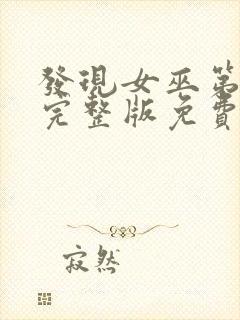 發現女巫第
完整版免費
寂然